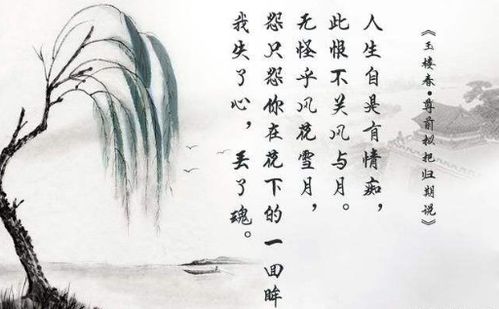 《玉楼春·尊前拟把归期说》
人生自是有情痴，
此恨不关风与月。
无怪乎风花雪月，
怨只怨你在花下的一回眸
我失了心，丢了魂。